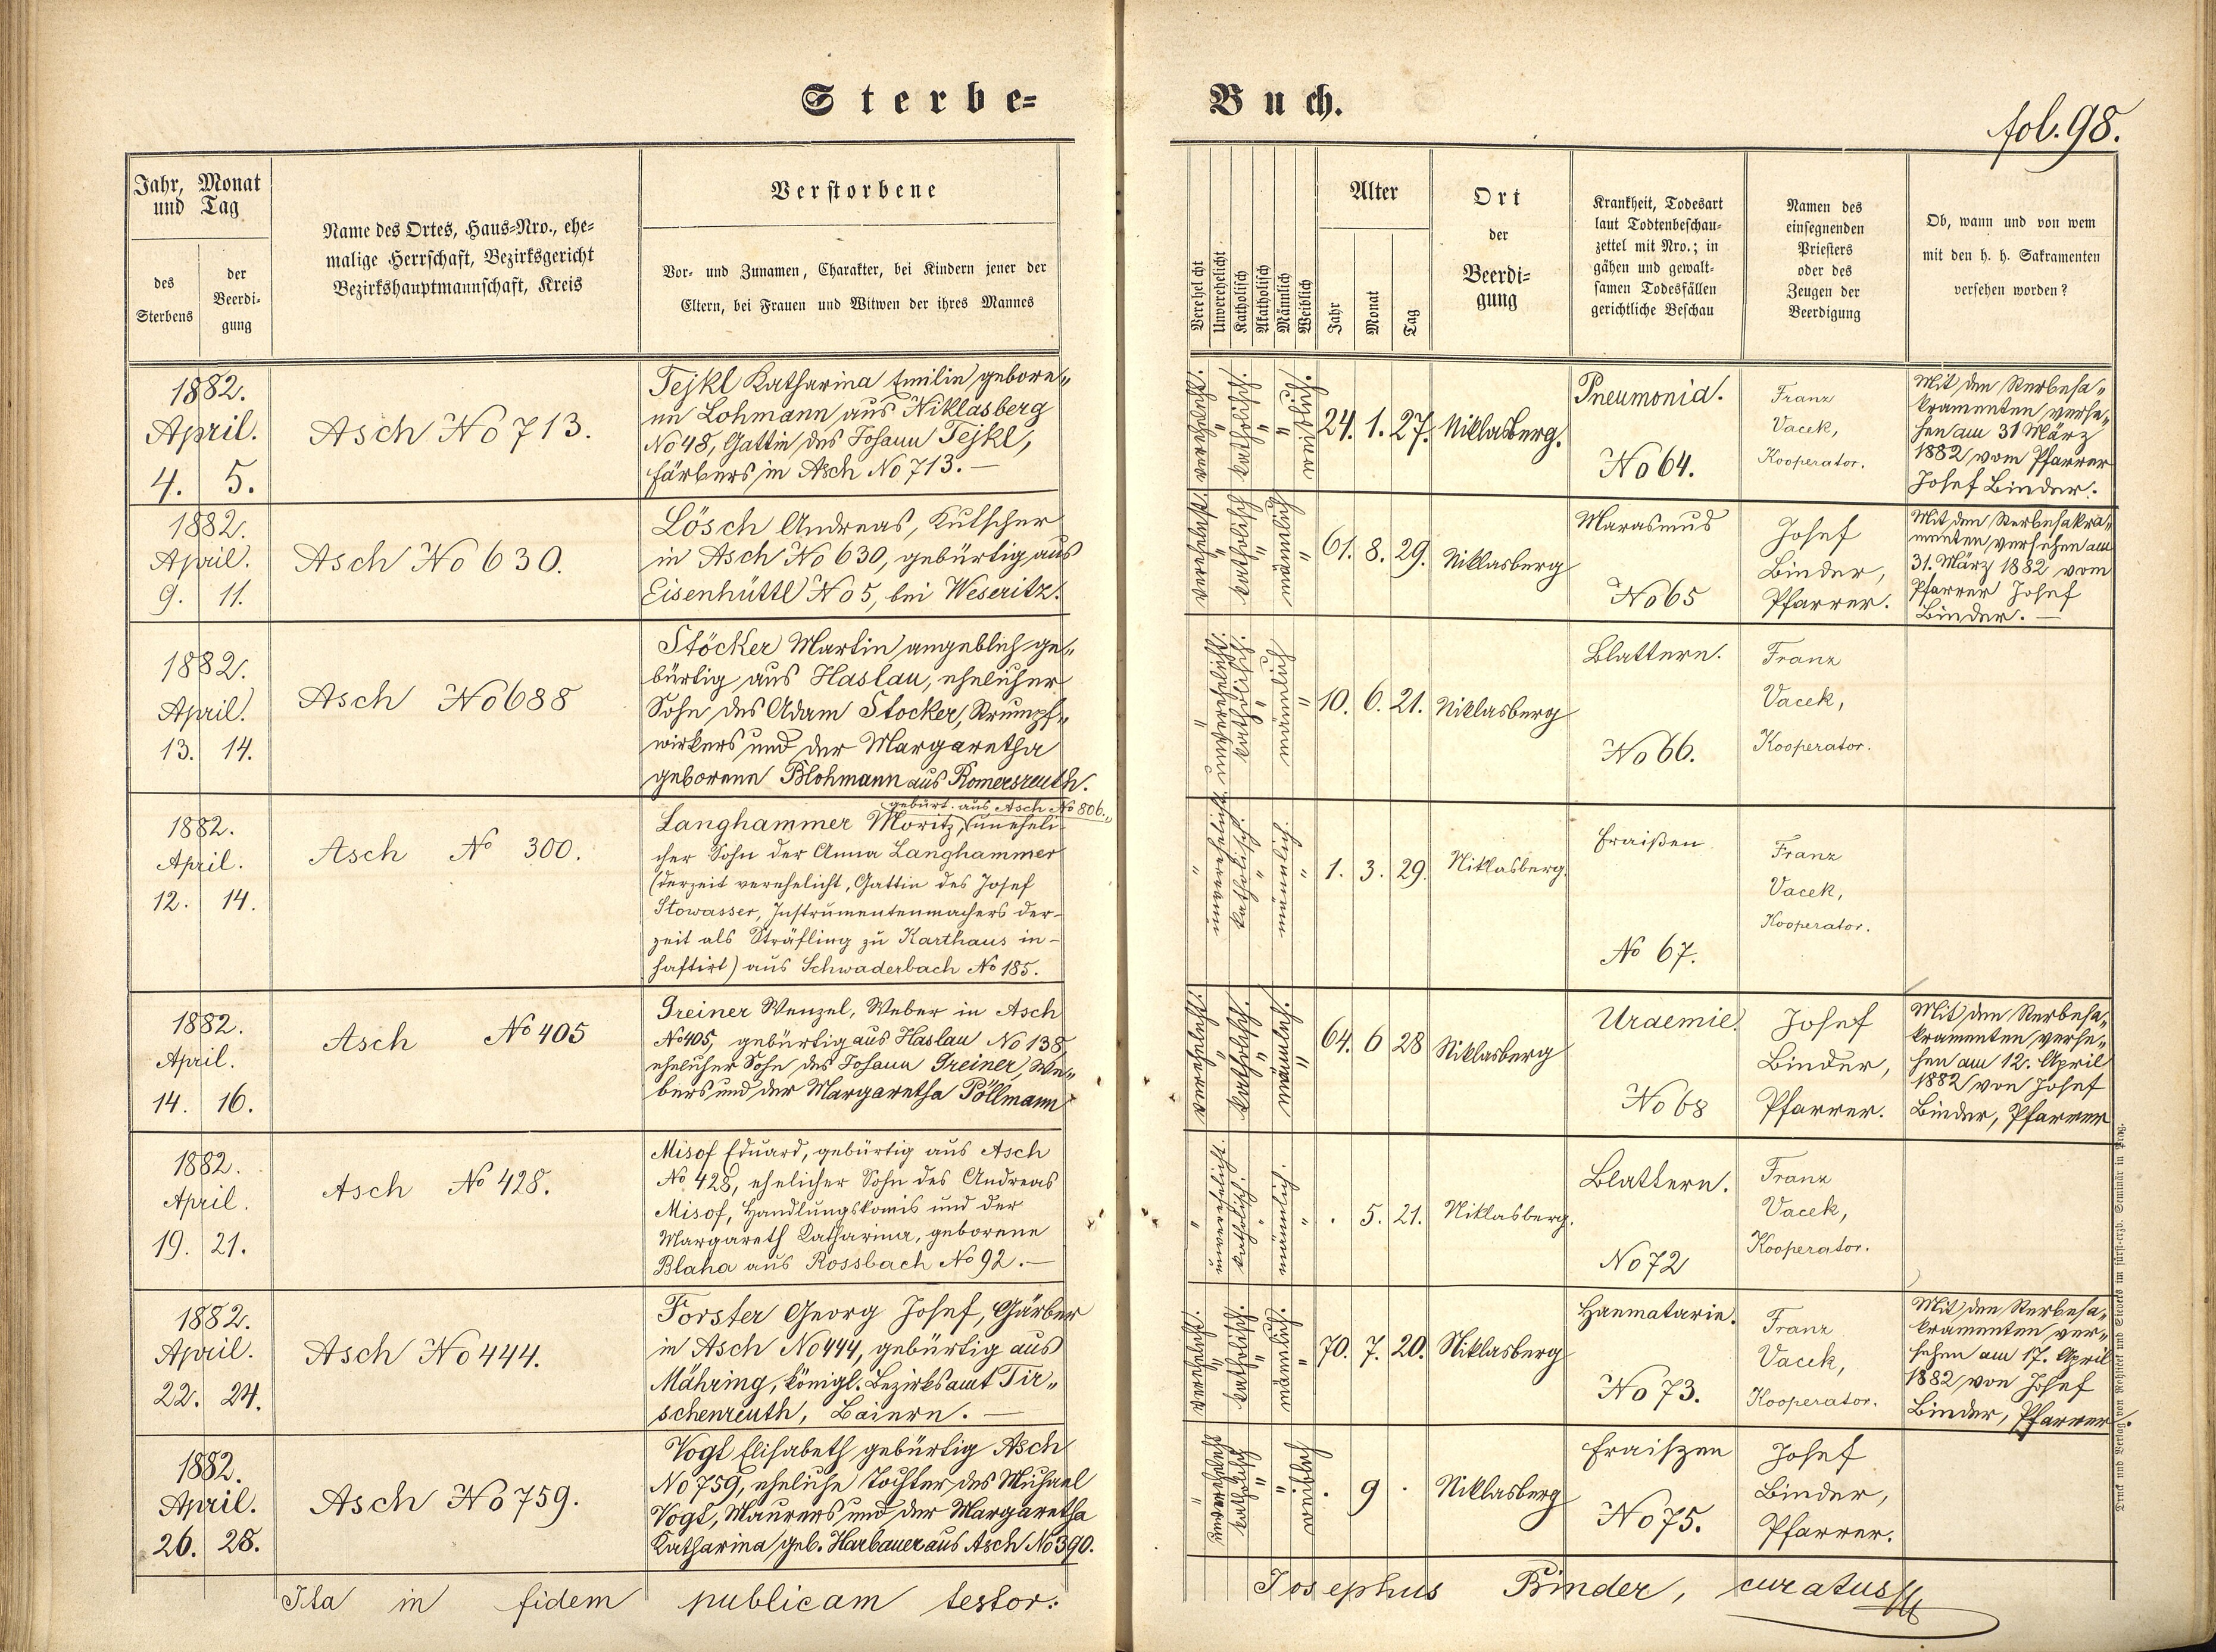 Sterbe=
Buch.
fol. 98.
Jahr, Monat
und Tag
des
Sterbens
der
Beerdi-
gung
Name des Ortes, Haus-Nro., ehe-
malige Herrschaft, Bezirksgericht
Bezirkshauptmannschaft, Kreis
Verstorbene
Vor- und Zunamen, Charakter, bei Kindern jener der
Eltern, bei Frauen und Witwen der ihres Mannes
Verehelicht
Unverehelicht
Katholisch
Akatholisch
Männlich
Weiblich
Alter
Jahr
Monat
Tag
Ort
der
Beerdi-
gung
Krankheit, Todesart
laut Todtenbeschau-
zettel mit Nro.; in
gähen und gewalt-
samen Todesfällen
gerichtliche Beschau
Namen des
einsegnenden
Priesters
oder des
Zeugen der
Beerdigung
Ob, wann und von wem
mit den h. h. Sakramenten
versehen worden?
1882.
April.
4. 5.
Asch No 713.
Tejkl Katharina Emilie gebore„
ne Lohmann aus Niklasberg
No 48, Gattin des Johann Tejkl,
Färbers in Asch No 713. —
verehelicht.
"
katholisch.
"
"
weiblich.
24. 1. 27.
Niklasberg.
Pneumonia.
No 64.
Franz
Vacek,
Kooperator.
Mit den Sterbesa„
kramenten verse„
hen am 31 März
1882 vom Pfarrer
Josef Binder.
1882.
April.
9. 11.
Asch No 630.
Lösch Andreas, Kutscher
in Asch No 630, gebürtig aus
Eisenhüttl No 5, bei Weseritz.
verehelicht
"
katholisch
"
männlich
"
61. 8. 29.
Niklasberg
Marasmus
No 65
Josef
Binder,
Pfarrer.
Mit den Sterbesakra„
menten versehen am
31. März 1882 vom
Pfarrer Josef
Binder. —
1882.
April.
13. 14.
Asch No 688
Stöcker Martin angeblich ge„
bürtig aus Haslau, ehelicher
Sohn des Adam Stocker, Strumpf„
wirkers und der Margaretha
geborene Blohmann aus Romersreuth.
"
unverehelicht.
katholisch.
"
männlich
"
10. 6. 21.
Niklasberg
Blattern.
No 66.
Franz
Vacek,
Kooperator.
1882.
April.
12. 14.
Asch No 300.
gebürt. aus Asch No 806.
Langhammer Moritz, uneheli-
cher Sohn der Anna Langhammer
(derzeit verehelicht, Gattin des Josef
Stowasser, Instrumentenmachers der-
zeit als Sträfling zu Karthaus in-
haftirt) aus Schwaderbach No 185.
"
unverehelicht.
katholisch.
"
männlich.
"
1. 3. 29.
Niklasberg.
Fraißen
No 67.
Franz
Vacek,
Kooperator.
1882.
April.
14. 16.
Asch No 405
Greiner Wenzel, Weber in Asch
No 405, gebürtig aus Haslau No 138
ehelicher Sohn des Johann Greiner, We„
bers und der Margaretha Pöllmann
verehelicht.
"
katholisch.
"
männlich.
"
64. 6 28
Niklasberg
Uraemie.
No 68
Josef
Binder,
Pfarrer.
Mit den Sterbesa„
kramenten verse„
hen am 12. April
1882 von Josef
Binder, Pfarrer
1882.
April.
19. 21.
Asch No 428.
Misof Eduard, gebürtig aus Asch
No 428, ehelicher Sohn des Andreas
Misof, Handlungskomis und der
Margareth Katharina, geborene
Blaha aus Rossbach No 92. —
"
unverehelicht.
katholisch.
"
männlich.
"
. 5. 21.
Niklasberg.
Blattern.
No 72
Franz
Vacek,
Kooperator.
1882.
April.
22. 24.
Asch No 444.
Forster Georg Josef, Gärber
in Asch No 444, gebürtig aus
Mähring, königl. Bezirksamt Tir„
schenreuth, Baiern. —
verehelicht.
"
katholisch.
"
männlich.
"
70. 7. 20.
Niklasberg
Haematarie.
No 73.
Franz
Vacek,
Kooperator.
Mit den Sterbesa„
kramenten ver„
sehen am 17. April
1882 von Josef
Binder, Pfarrer.
1882.
April.
26. 28.
Asch No 759.
Vogl Elisabeth gebürtig Asch
No 759, eheliche Tochter des Michael
Vogl, Maurers und der Margaretha
Katharina geb. Harbauer aus Asch No 390.
"
unverehelicht
katholisch
"
"
weiblich
. 9 .
Niklasberg
Fraiszen
No 75.
Josef
Binder,
Pfarrer.
Ita in fidem publicam testor:
Josephus Binder, curatus
Druck und Verlag von Rohliček und Sievers im fürst-erzb. Seminär in Prag.